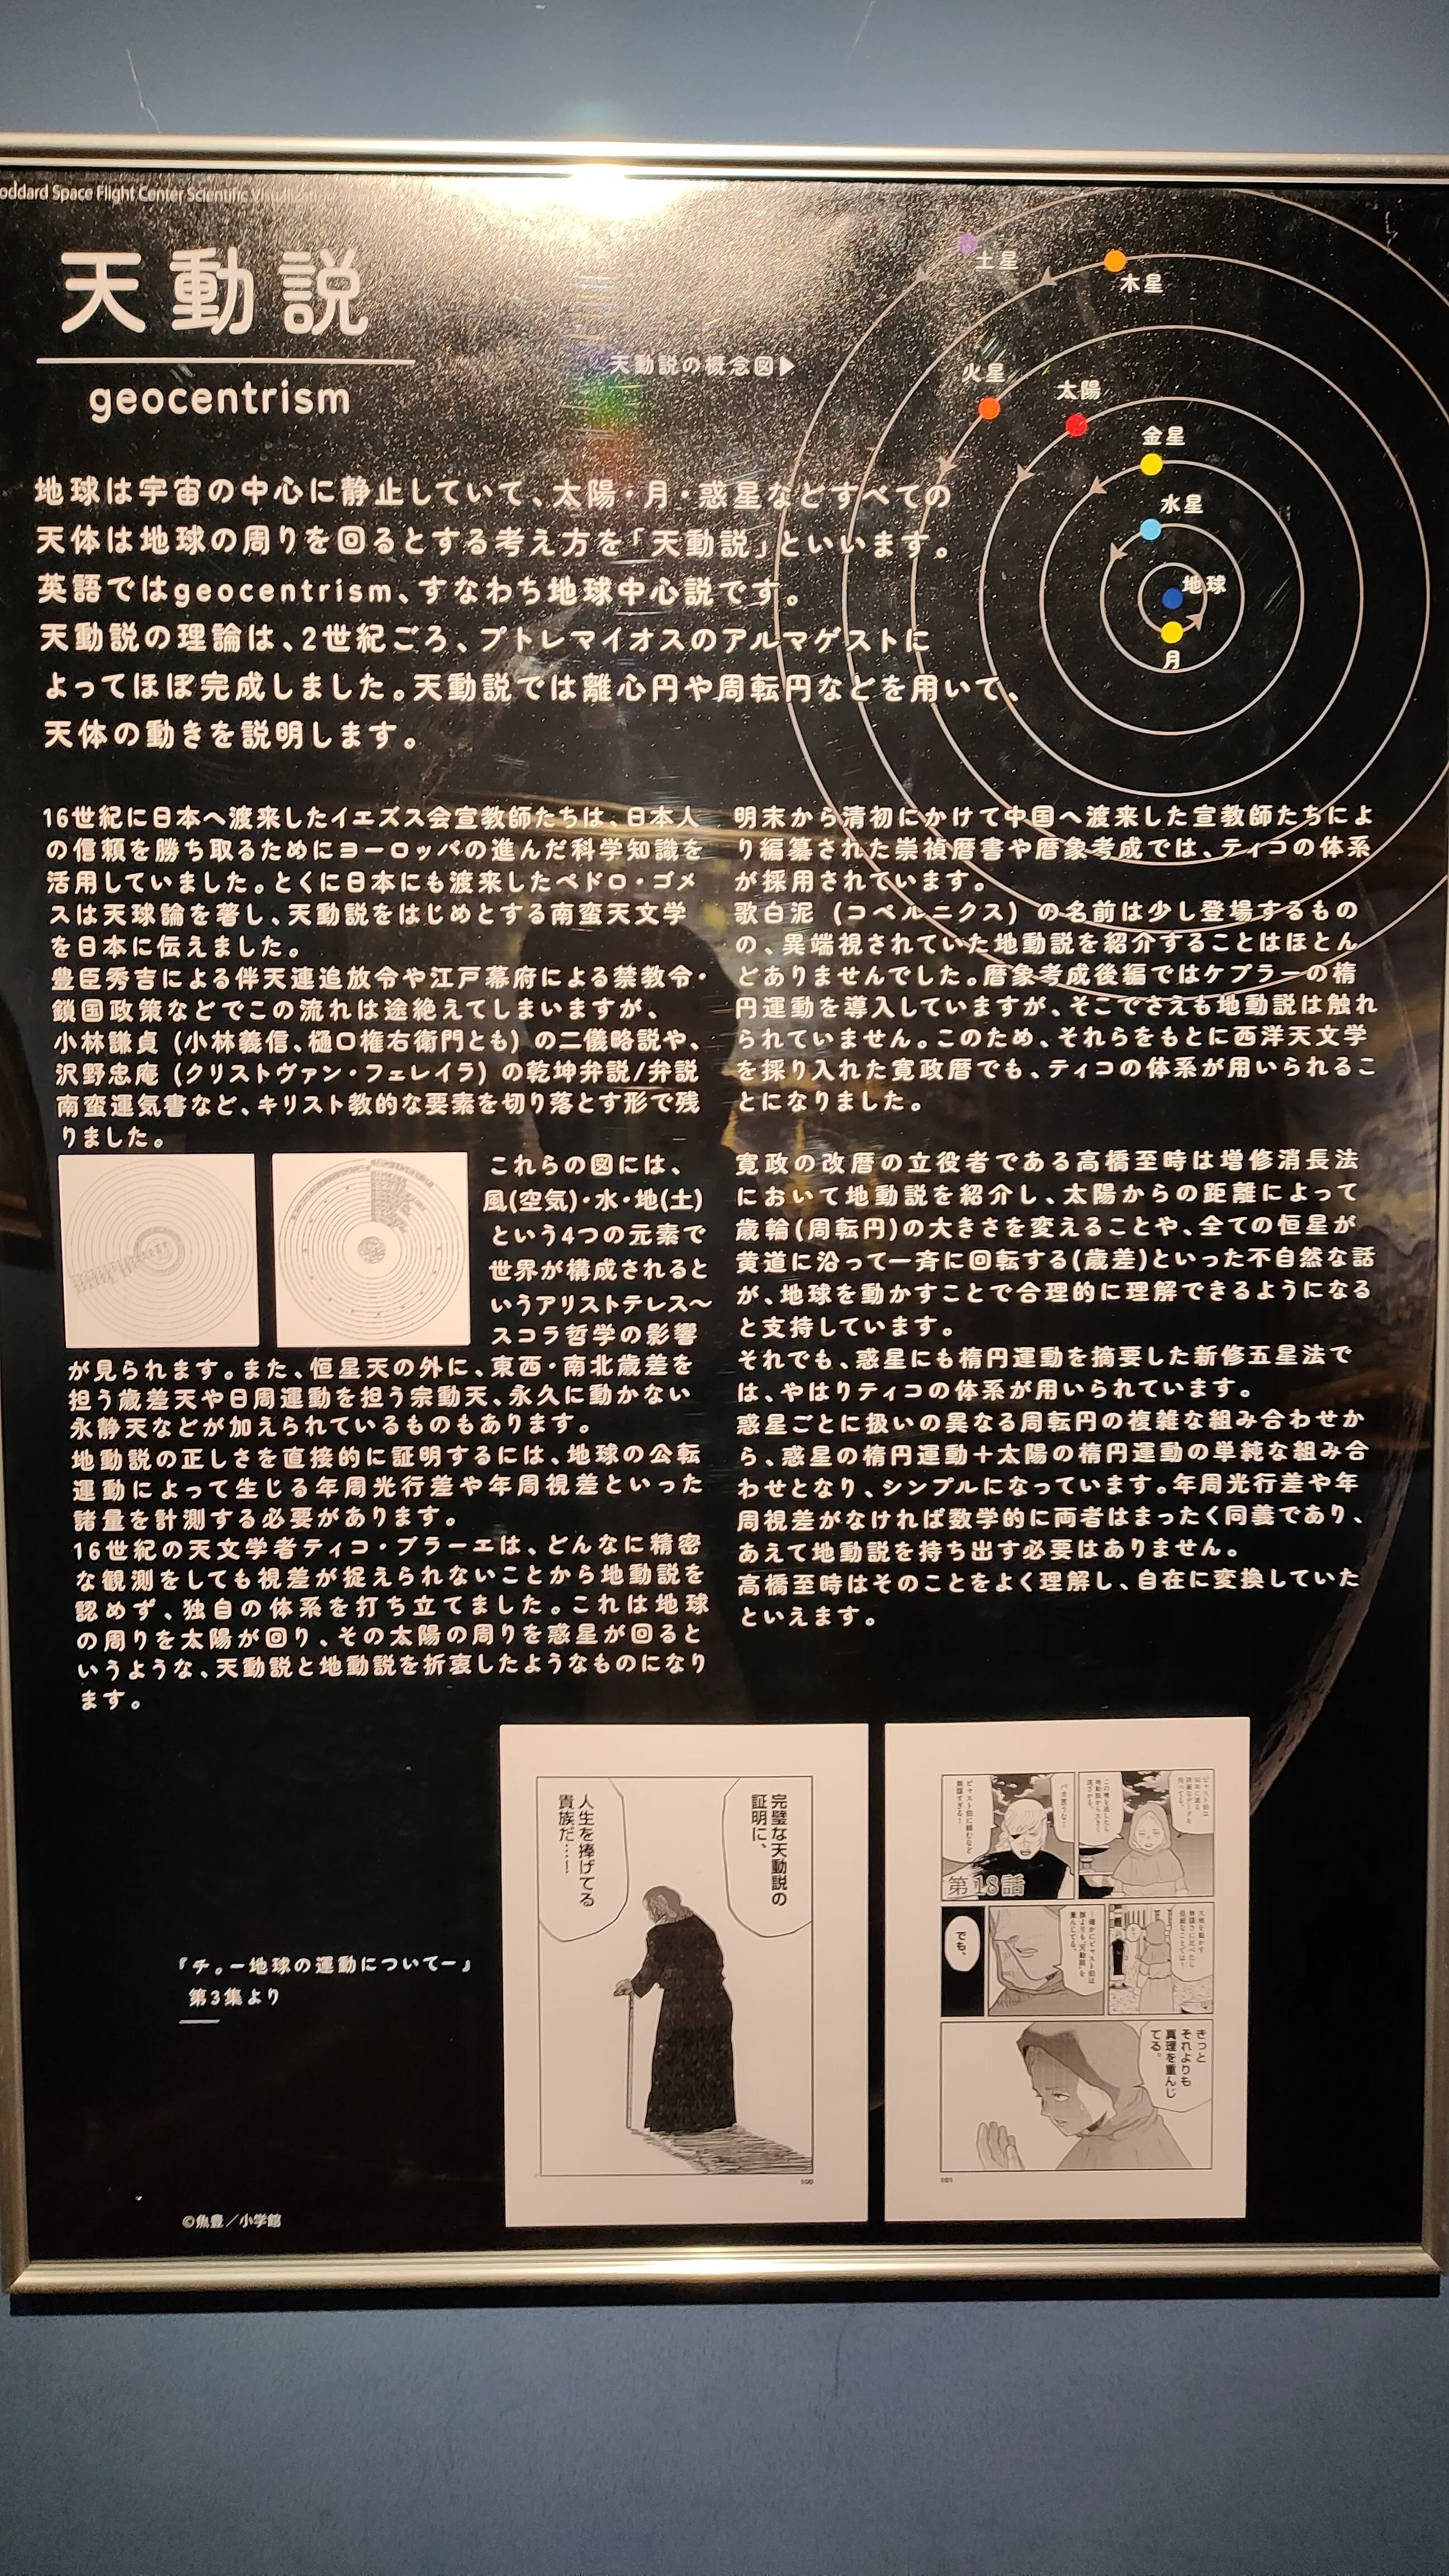 oddard Space Flight Center Scientific
天動説
geocentrism
天動説の概念図▶
土星
木星
火星
太陽
金星
水星
地球
月
地球は宇宙の中心に静止していて、太陽・月・惑星などすべての
天体は地球の周りを回るとする考え方を「天動説」といいます。
英語ではgeocentrism、すなわち地球中心説です。
天動説の理論は、2世紀ごろ、プトレマイオスのアルマゲストに
よってほぼ完成しました。天動説では離心円や周転円などを用いて、
天体の動きを説明します。
16世紀に日本へ渡来したイエズス会宣教師たちは、日本人
の信頼を勝ち取るためにヨーロッパの進んだ科学知識を
活用していました。とくに日本にも渡来したペドロ・ゴメ
スは天球論を著し、天動説をはじめとする南蛮天文学
を日本に伝えました。
豊臣秀吉による伴天連追放令や江戸幕府による禁教令・
鎖国政策などでこの流れは途絶えてしまいますが、
小林謙貞（小林義信、樋口権右衛門とも）の二儀略説や、
沢野忠庵（クリストヴァン・フェレイラ）の乾坤弁説/弁説
南蛮運気書など、キリスト教的な要素を切り落とす形で残
りました。
これらの図には、
風(空気)・水・地(土)
という4つの元素で
世界が構成されると
いうアリストテレス〜
スコラ哲学の影響
が見られます。また、恒星天の外に、東西・南北歳差を
担う歳差天や日周運動を担う宗動天、永久に動かない
永静天などが加えられているものもあります。
地動説の正しさを直接的に証明するには、地球の公転
運動によって生じる年周光行差や年周視差といった
諸量を計測する必要があります。
16世紀の天文学者ティコ・ブラーエは、どんなに精密
な観測をしても視差が捉えられないことから地動説を
認めず、独自の体系を打ち立てました。これは地球
の周りを太陽が回り、その太陽の周りを惑星が回ると
いうような、天動説と地動説を折衷したようなものになり
ます。
明末から清初にかけて中国へ渡来した宣教師たちによ
り編纂された崇禎暦書や暦象考成では、ティコの体系
が採用されています。
歌白泥（コペルニクス）の名前は少し登場するもの
の、異端視されていた地動説を紹介することはほとん
どありませんでした。暦象考成後編ではケプラーの楕
円運動を導入していますが、そこでさえも地動説は触れ
られていません。このため、それらをもとに西洋天文学
を採り入れた寛政暦でも、ティコの体系が用いられるこ
とになりました。
寛政の改暦の立役者である高橋至時は増修消長法
において地動説を紹介し、太陽からの距離によって
歳輪(周転円)の大きさを変えることや、全ての恒星が
黄道に沿って一斉に回転する(歳差)といった不自然な話
が、地球を動かすことで合理的に理解できるようになる
と支持しています。
それでも、惑星にも楕円運動を摘要した新修五星法で
は、やはりティコの体系が用いられています。
惑星ごとに扱いの異なる周転円の複雑な組み合わせか
ら、惑星の楕円運動＋太陽の楕円運動の単純な組み合
わせとなり、シンプルになっています。年周光行差や年
周視差がなければ数学的に両者はまったく同義であり、
あえて地動説を持ち出す必要はありません。
高橋至時はそのことをよく理解し、自在に変換していた
といえます。
完璧な天動説の
証明に、
人生を捧げてる
貴族だ…！
第18話
でも、
きっと
それよりも
真理を重んじ
てる。
『チ。ー地球の運動についてー』
第3集より
©魚豊／小学館